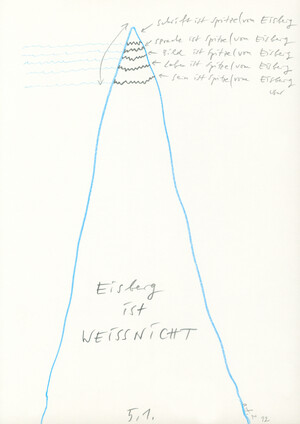 schrift ist Spitze/vom Eisberg
sprache ist Spitze/vom Eisberg
Bild ist Spitze/vom Eisberg
ist Spitze/vom Eisberg
sein ist Spitze/vom Eisberg
Eisberg
ist
WEISSNICHT
5.1.